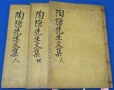 陶隱先生文集 天
陶隱先生文集 地
陶隱先生文集 人